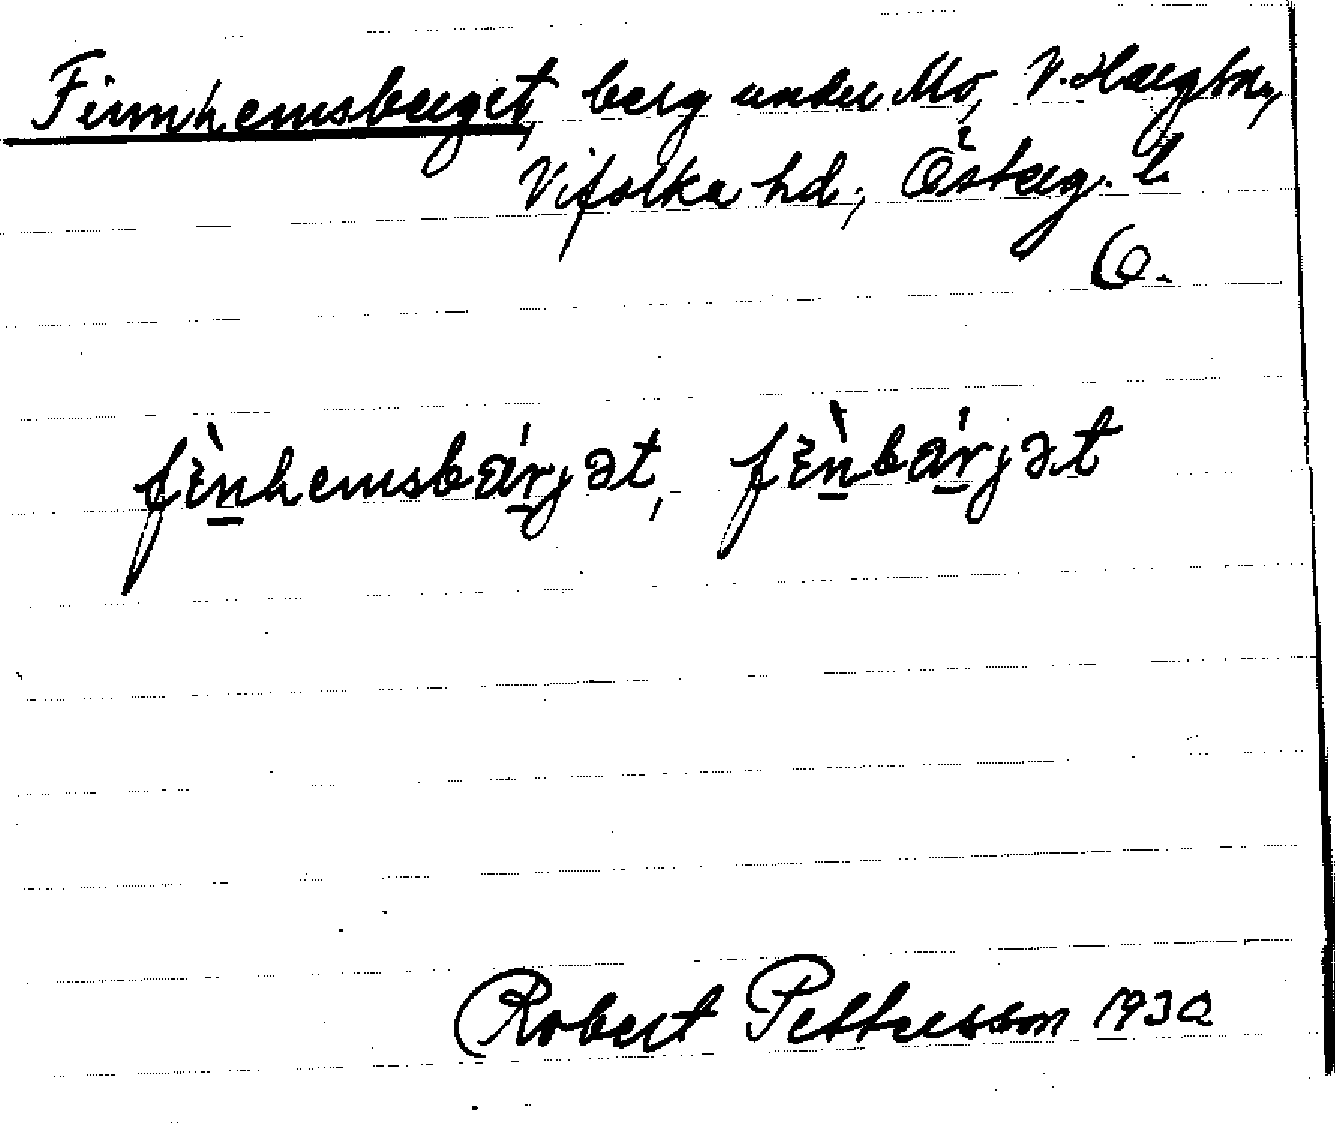 Finnhemsberget, berg under Mo, V. Harg sn,
Vifolka hd, Österg. l.
6.
fìnhemsbárjət, fìnbárjət
Robert Pettersson 1930